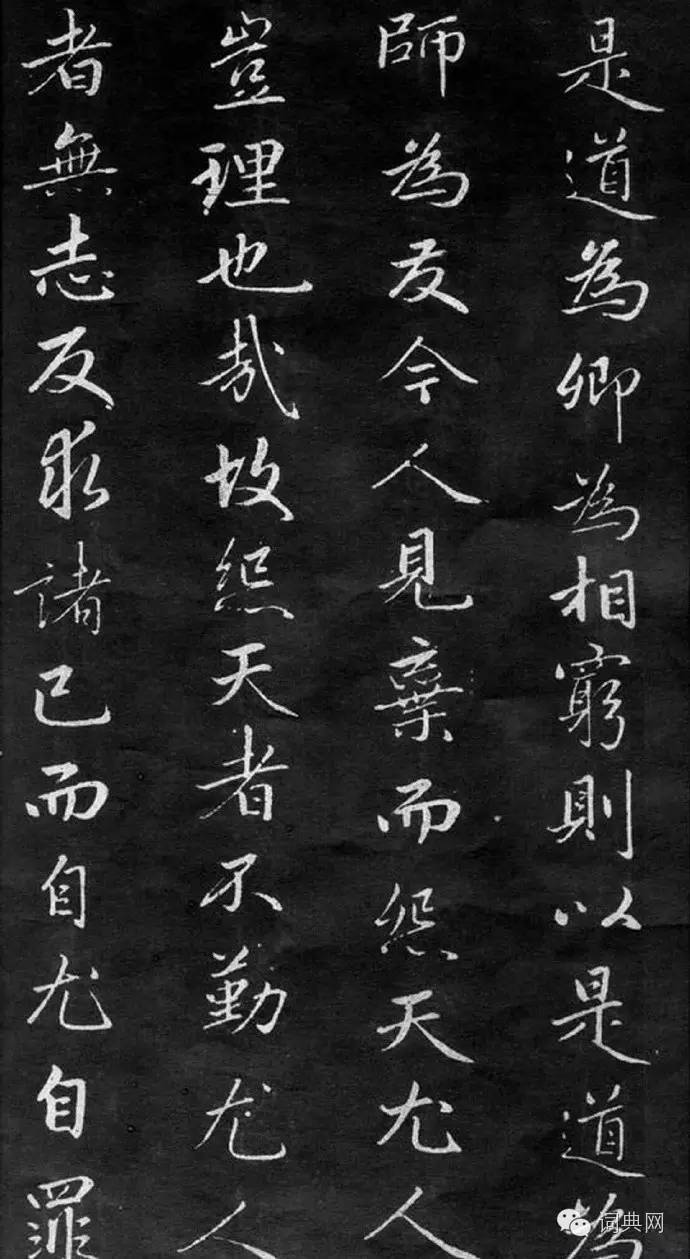 是道為卿為相窮則以是道為
師為友今人見棄而怨天尤人
豈理也哉故怨天者不勤尤人
者無志反求諸己而自尤自罪
词典网